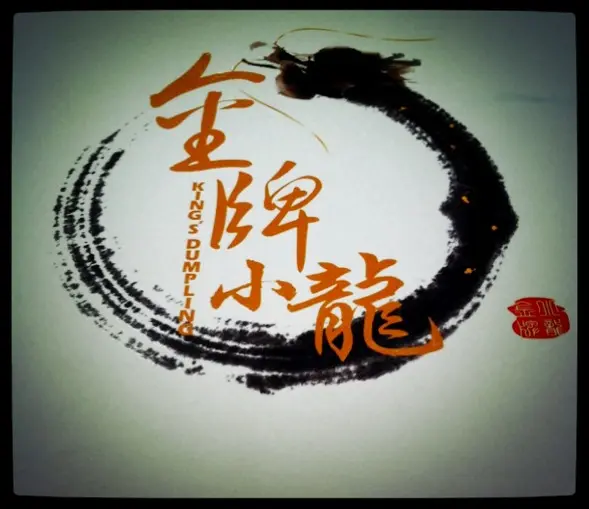 金牌小龍
KING'S DUMPLING
金牌
小龍